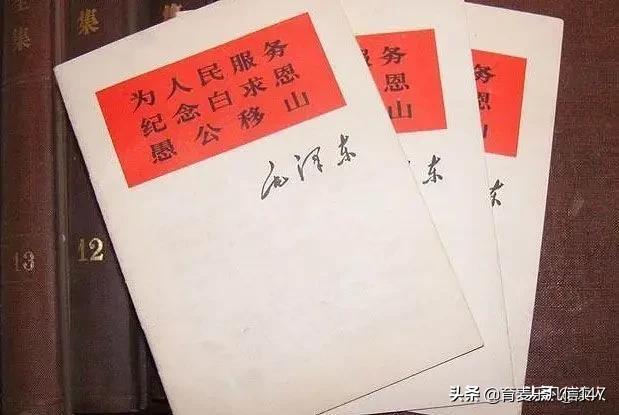 集
13
集
12
为人民服务
纪念白求恩
愚公移山
毛泽东
务
求恩
山
东
务
恩
山
东
头条